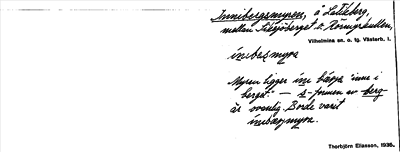 Innibergsmyren, å Latikberg,
mellan Siksjöberget o. Rönnyrkullen,
Vilhelmina sn. o. tg. Västerb. l.
inəbasmyra
Myren ligger inə bäṛṣa "inne i
berget." — s-formen av berg
är ovanlig. Borde varit
inəbærgmyra.
Thorbjörn Eliasson, 1936.